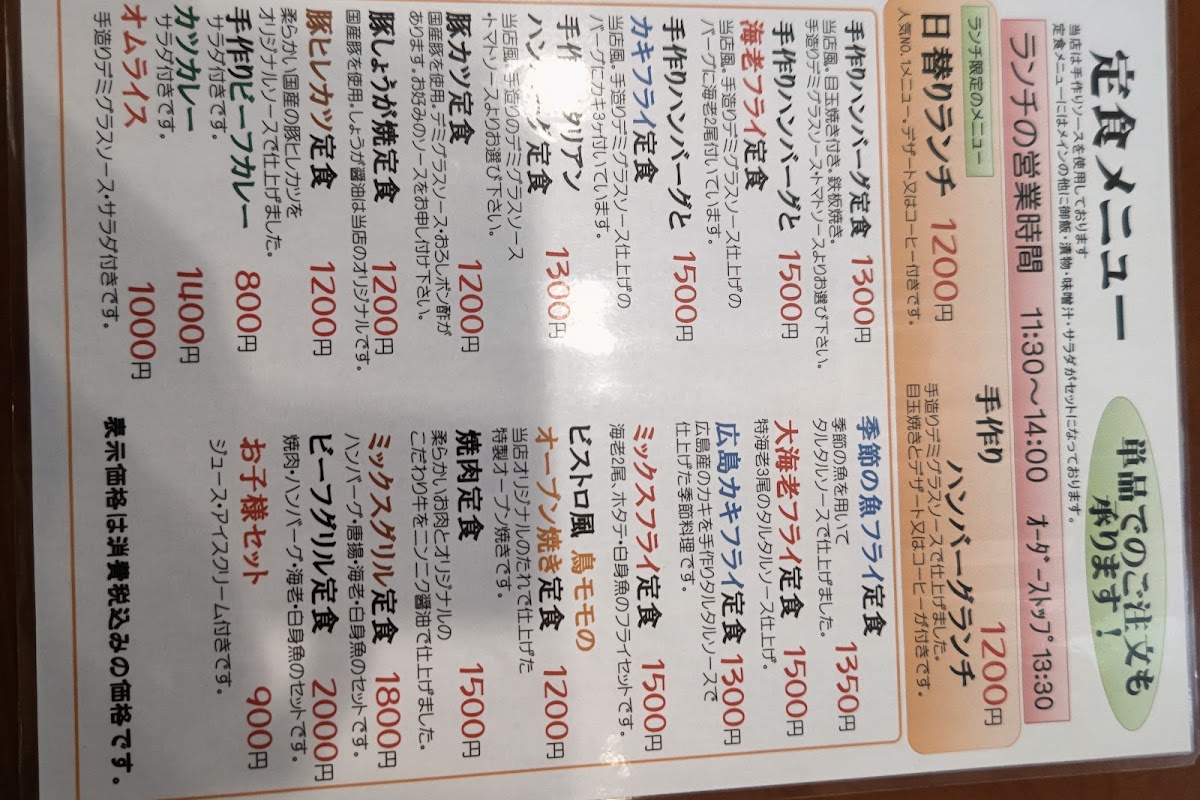 定食メニュー
単品でのご注文も
承ります!
当店は手作りソースを使用しております
定食メニューにはメインの他に御飯・漬物・味噌汁・サラダがセットになっております。
ランチの営業時間 11:30～14:00 オーダーストップ13:30
ランチ限定のメニュー
日替りランチ 1200円
人気NO.1メニュー。デザート又はコーヒー付きです。
手作り
ハンバーグランチ
1200円
手造りデミグラスソースで仕上げました。
目玉焼きとデザート又はコーヒーが付きです。
手作りハンバーグ定食 1300円
当店風。目玉焼き付き。鉄板焼き。
手造りデミグラスソース・トマトソースよりお選び下さい。
手作りハンバーグと
海老フライ定食 1500円
当店風。手造りデミグラスソース仕上げの
バーグに海老2尾付いています。
手作りハンバーグと
カキフライ定食 1500円
当店風。手造りデミグラスソース仕上げの
バーグにカキ3ケ付いています。
手作 タリアン
ハン ーグ定食 1300円
当店風。手造りのデミグラスソース
トマトソースよりお選び下さい。
豚カツ定食 1200円
国産豚を使用。デミグラスソース・おろしポン酢が
あります。お好みのソースをお申し付け下さい。
豚しょうが焼定食 1200円
国産豚を使用。しょうが醤油は当店のオリジナルです。
豚ヒレカツ定食 1200円
柔らかい国産の豚ヒレカツを
オリジナルソースで仕上げました。
手作りビーフカレー 800円
サラダ付きです。
カツカレー 1400円
サラダ付きです。
オムライス 1000円
手造りデミグラスソース・サラダ付きです。
季節の魚フライ定食 1350円
季節の魚を用いて
タルタルソースで仕上げました。
大海老フライ定食 1500円
特海老3尾のタルタルソース仕上げ。
広島カキフライ定食 1300円
広島産のカキを手作りタルタルソースで
仕上げた季節料理です。
ミックスフライ定食 1500円
海老2尾、ホタテ・白身魚のフライセットです。
ビストロ風 鳥モモの
オーブン焼き定食 1200円
当店オリジナルのたれで仕上げた
特製オーブン焼きです。
焼肉定食 1500円
柔らかいお肉とオリジナルの
こだわり牛をニンニク醤油で仕上げました。
ミックスグリル定食 1800円
ハンバーグ・唐揚・海老・白身魚のセットです。
ビーフグリル定食 2000円
焼肉・ハンバーグ・海老・白身魚のセットです。
お子様セット 900円
ジュース・アイスクリーム付きです。
表示価格は消費税込みの価格です。